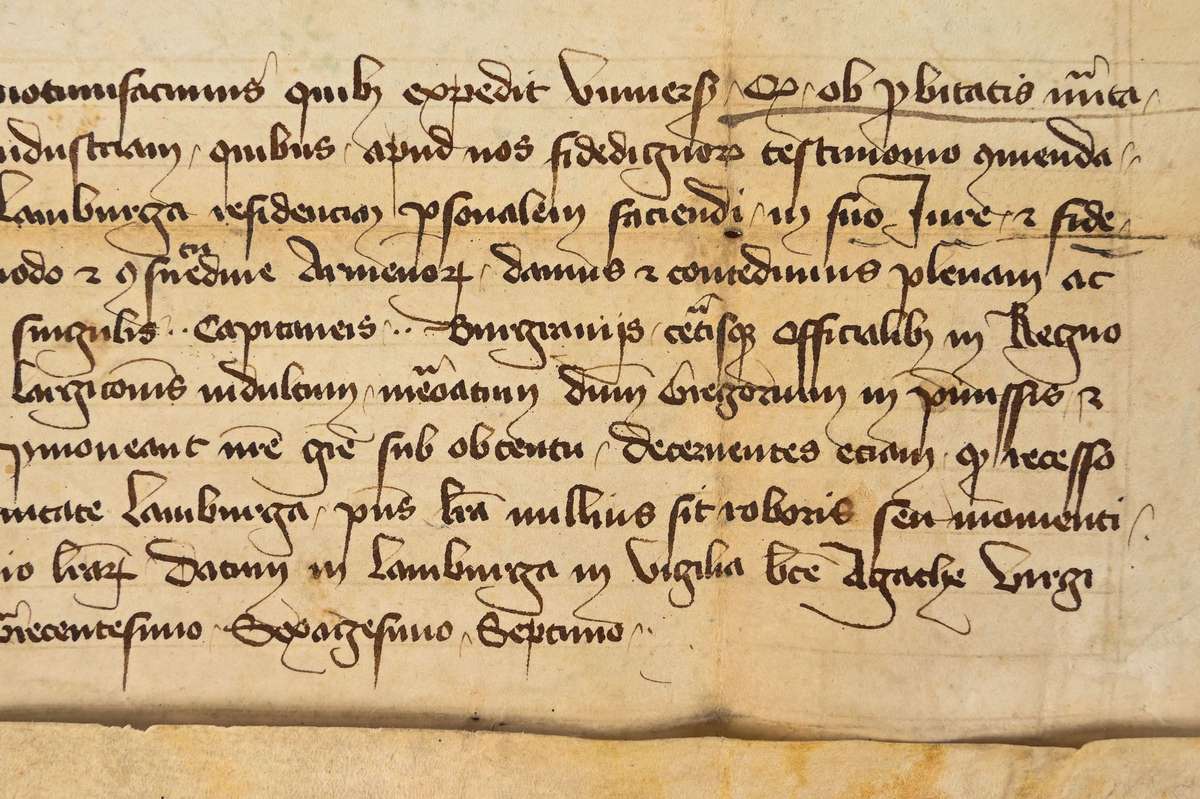 notumfacimus quib expedit Vniuersis Q ob pbitatis mita
industriam quibus apud nos fidedignor testimonio gmenda
Lamburga residencia psonalem faciendi in suo Iure et fide
modo et gsuetudine Armenor damus et concedimus plenam ac
singulis Capitaneis Burgrauijs cetisq Officialib in Regno
largicois indultum meoatum dnm Gregorium in pmissis et
pmoueant nre gre sub obtentu decernentes eciam q recesso
uitate Lamburga pns lra nullius sit roboris seu momenti
io lrar Datum in Lamburga in vigilia bte Agathe Virgi
Trecentesimo Sexagesimo Septimo